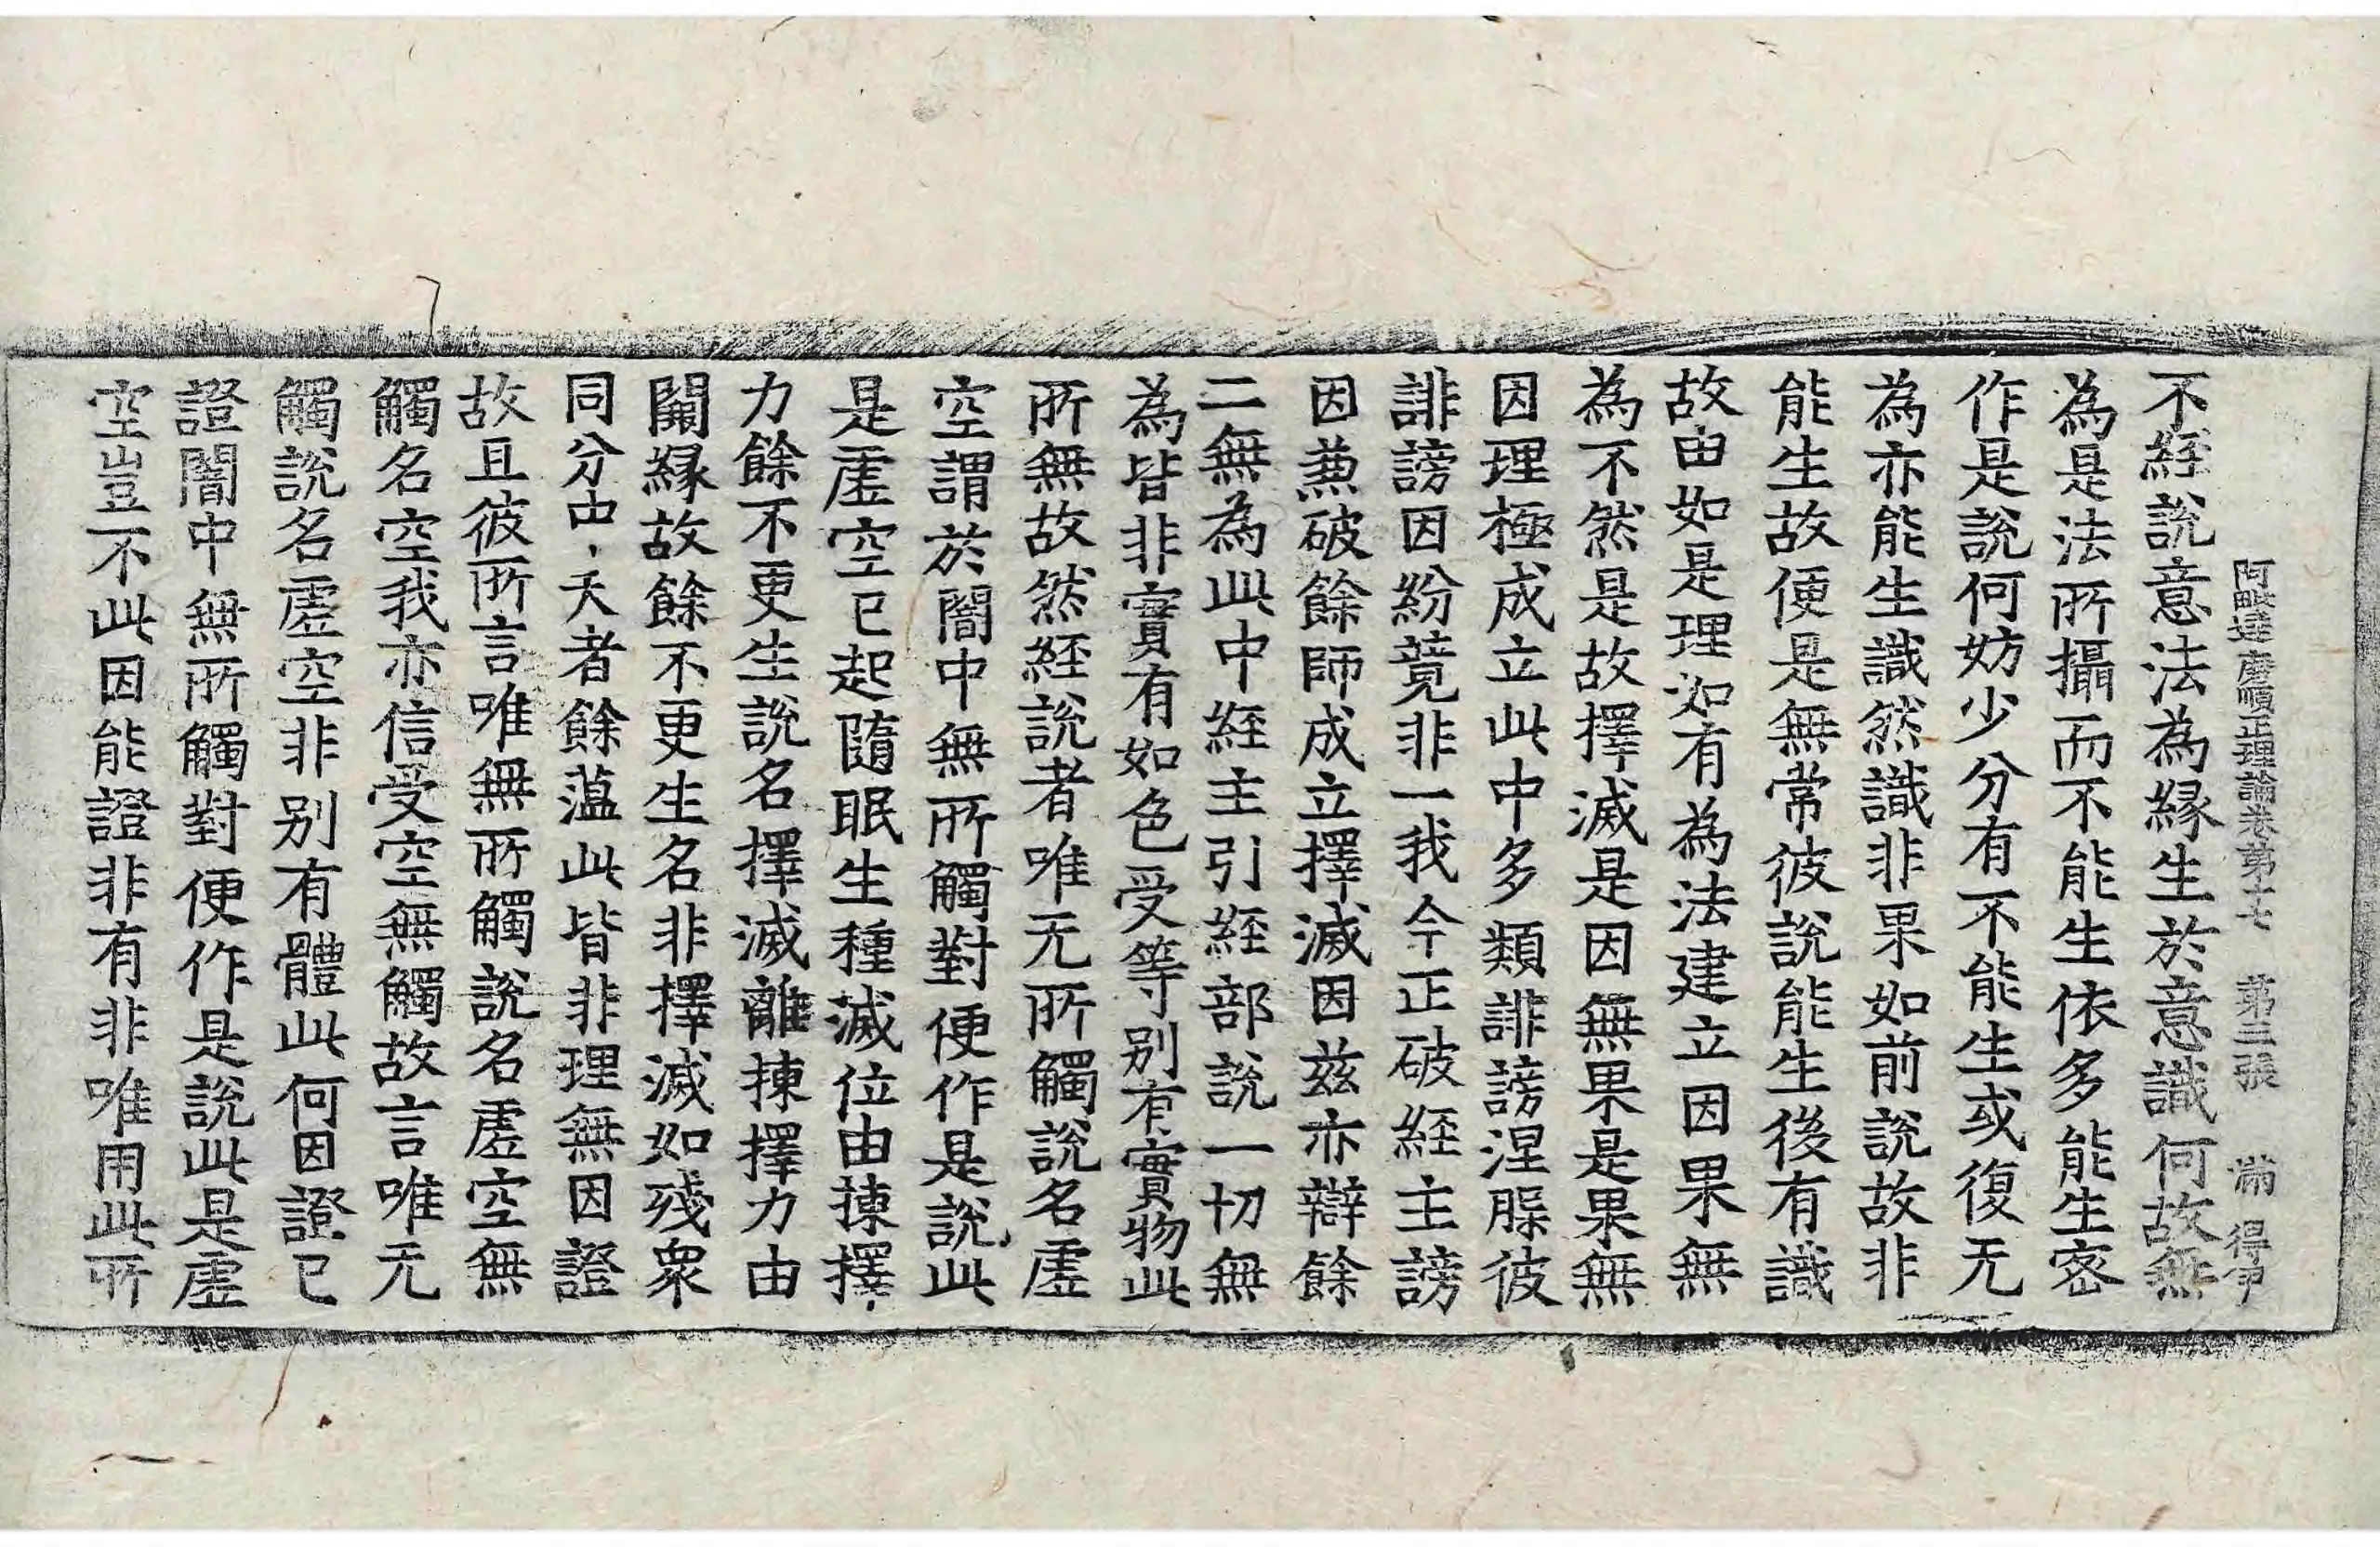 阿毗達磨順正理論卷第十七　第三張　滿　得伊
不經說意法為縁生於意識何故無
為是法所攝而不能生依多能生密
作是說何妨少分有不能生或復无
為亦能生識然識非果如前說故非
能生故便是無常彼說能生後有識
故由如是理如有為法建立因果無
為不然是故擇滅是因無果是果無
因理極成立此中多類誹謗涅槃彼
誹謗因紛竟非一我今正破經主謗
因兼破餘師成立擇滅因茲亦辯餘
二無為此中經主引經部說一切無
為皆非實有如色受等別有實物此
所無故然經說者唯无所觸說名虛
空謂於闇中無所觸對便作是說此
是虛空已起隨眠生種滅位由揀擇
力餘不更生說名擇滅離揀擇力由
闕縁故餘不更生名非擇滅如殘衆
同分中夭者餘蘊此皆非理無因證
故且彼所言唯無所觸說名虛空無
觸名空我亦信受空無觸故言唯无
觸說名虛空非別有體此何因證已
證闇中無所觸對便作是說此是虛
空豈不此因能證非有非唯用此所